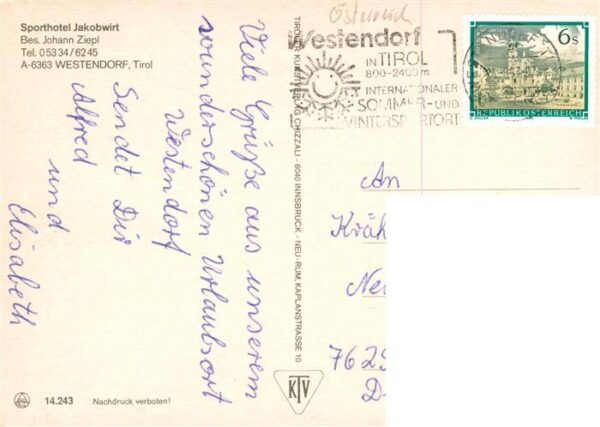 Sporthotel Jakobwirt
Bes. Johann Ziepl
Tel. 05334/6245
A-6363 WESTENDORF, Tirol
Viele Grüße aus unserem
wunderschönen Urlaubsort
Westendorf
Sendet Dir
Alfred
und
Elisabeth
14.243 Nachdruck verboten!
TIROLER KUNSTVERLAG CHIZZALI - 6040 INNSBRUCK - NEU-RUM, KAPLANSTRASSE 10
KTV
Österreich
Westendorf
IN TIROL
800-2400m
INTERNATIONALER
SOMMER-UND
WINTERSPORTORT
6s
REPUBLIK ÖSTERREICH
An